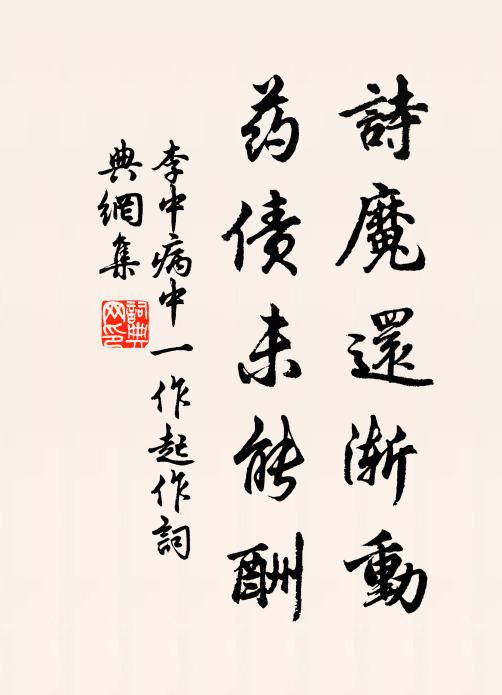 詩魔還渐動
药债未能酬
李中病中一作起作詞
典網集
詞典
网印